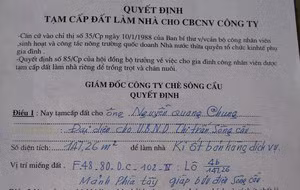 QUYẾT ĐỊNH
TẠM CẤP ĐẤT LÀM NHÀ CHO CBCNV CÔNG TY
-Căn cứ vào chỉ thị số 35/Cp ngày 10/1/1988 của Ban bí thư v/v cán bộ công nhân viên
sinh hoạt và công tác nông trường quốc doanh Nhà nước thừa quyền tổ chức kinh tế phụ
gia đình.
-Quyết định số 85/Cp của hội đồng bộ trưởng về việc cho gia đình công nhân viên được
tạm cấp đất làm nhà riêng để trồng trọt và chăn nuôi.
GIÁM ĐỐC CÔNG TY CHÈ SÔNG CẦU
QUYẾT ĐỊNH
Điều 1 : Nay tạm cấp đất cho ông Nguyễn Quang Chung
Đại diện cho U.B.N.D Thị trấn Sông Cầu
Số diện tích 147,26 m2 để làm nhà Ki ốt bán hàng dịch vụ.
Vị trí miếng đất . F.48.80.D.C. 102-IV : Lô 4b
Mảnh phía tây giáp bưu điện Sông Cầu